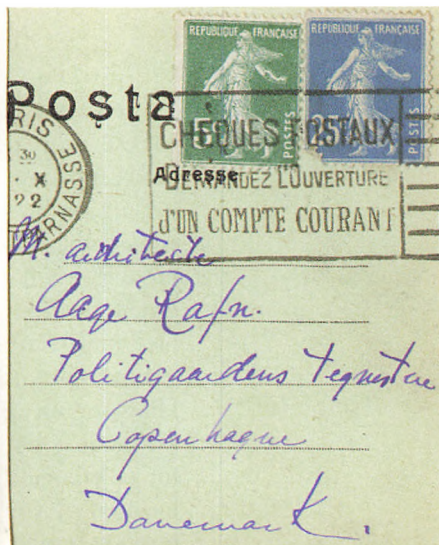 REPUBLIQUE FRANÇAISE
REPUBLIQUE FRANÇAISE
Posta
5
POSTES
25
POSTES
PARIS
30
X
22
MONTPARNASSE
CHEQUES POSTAUX
DEMANDEZ L'OUVERTURE
D'UN COMPTE COURANT
Adresse
M. architecte
Aage Rafn.
Politigaardens Tegnestue
Copenhague
Danemark.